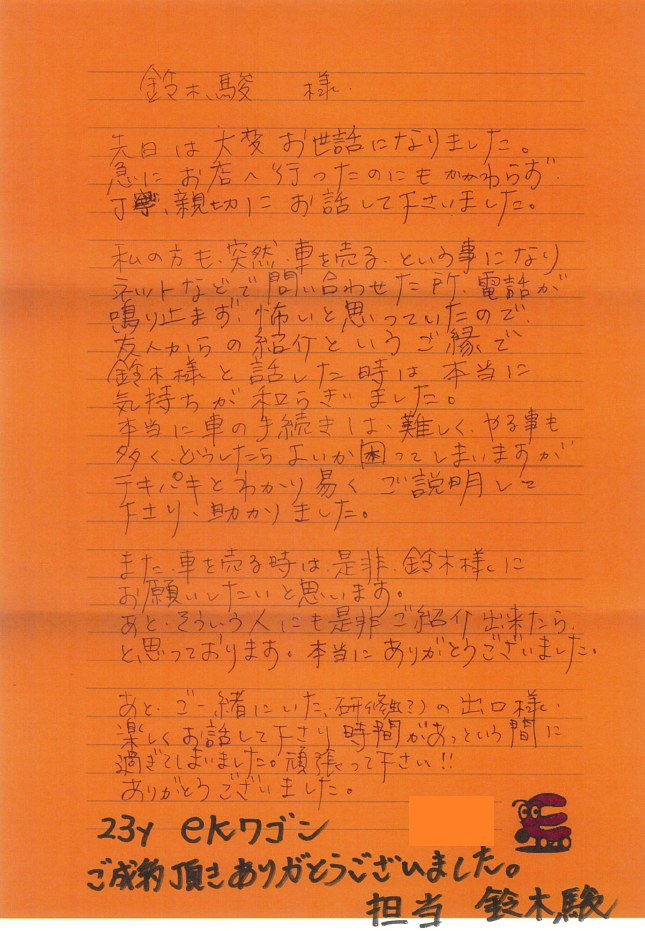 鈴木駿 様.
先日は大変お世話になりました。
急にお店へ行ったのにもかかわらず
丁寧、親切にお話して下さいました。
私の方も、突然、車を売る、という事になり
ネットなどで問い合わせた所、電話が
鳴り止まず、怖いと思っていたので、
友人からの紹介というご縁で
鈴木様と話した時は本当に
気持ちが和らぎました。
本当に車の手続きは、難しく、やる事も
多く、どうしたらよいか困ってしまいますが
テキパキとわかり易くご説明して
下さり、助かりました。
また、車を売る時は、是非、鈴木様に
お願いしたいと思います。
あと、そういう人にも是非ご紹介出来たら、
と思っております。本当にありがとうございました。
あと、ご一緒にいた、研修(生?)の出口様、
楽しくお話して下さり時間があっという間に
過ぎてしまいました。頑張って下さい!!
ありがとうございました。
23y eKワゴン
ご成約頂きありがとうございました。
担当 鈴木駿